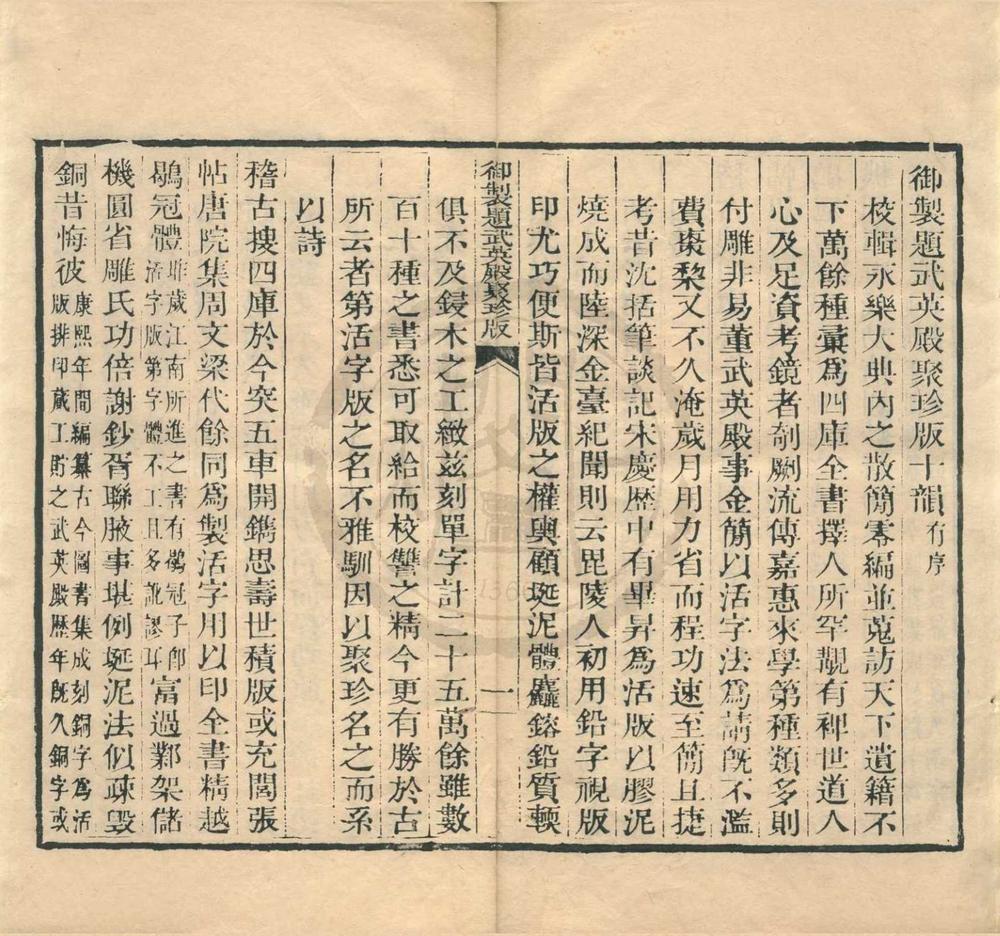 御製題武英殿聚珍版十韻有序
校輯永樂大典内之散簡零編並蒐訪天下遺籍不
下萬餘種彙爲四庫全書擇人所罕覯有裨世道人
心及足資考鏡者剞劂流傳嘉惠來學第種類多則
付雕非易董武英殿事金簡以活字法爲請既不濫
費棗棃又不久淹歲月用力省而程功速至簡且捷
考昔沈括筆談記宋慶歷中有畢昇爲活版以膠泥
燒成而陸深金臺紀聞則云毘陵人初用鉛字視版
印尤巧便斯皆活版之權輿顧埏泥體麤鎔鉛質輭
御製題武英殿聚珍版
一
俱不及鋟木之工緻茲刻單字計二十五萬餘雖數
百十種之書悉可取給而校讐之精今更有勝於古
所云者第活字版之名不雅馴因以聚珍名之而系
以詩
稽古搜四庫於今突五車開鐫思壽世積版或充閭張
帖唐院集周文梁代餘同爲製活字用以印全書精越
鶡冠體昨歲江南所進之書有鶡冠子即
活字版第字體不工且多訛謬耳富過鄴架儲
機圓省雕氏功倍謝鈔胥聯腋事堪例埏泥法似疎毀
銅昔悔彼康熙年間編纂古今圖書集成刻銅字爲活
版排印蕆工貯之武英殿歷年既久銅字或